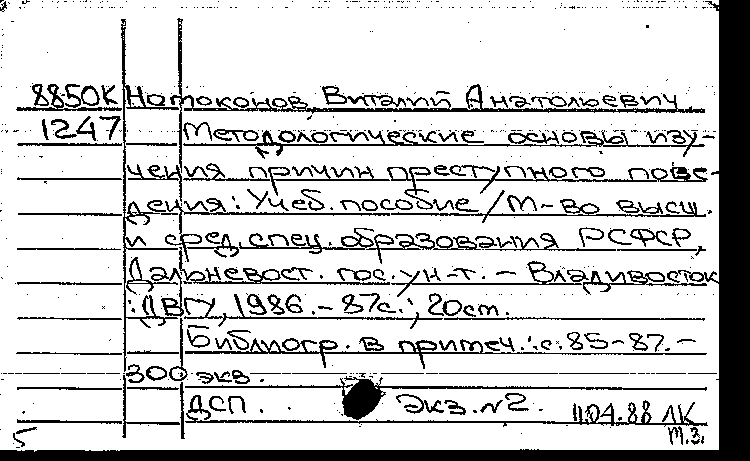 88-50К Номоконов, Виталий Анатольевич
1247 Методологические основы изу-
чения причин преступного пове-
дения: Учеб. пособие / М-во высш.
и сред. спец. образования РСФСР,
Дальневост. гос. ун-т. – Владивосток
: ДВГУ, 1986. – 87с.; 20см.
Библиогр. в примеч.: с. 85-87. –
300 экз.
ДСП. Экз. №2. 11.04.88 ЛК
5 т.з.